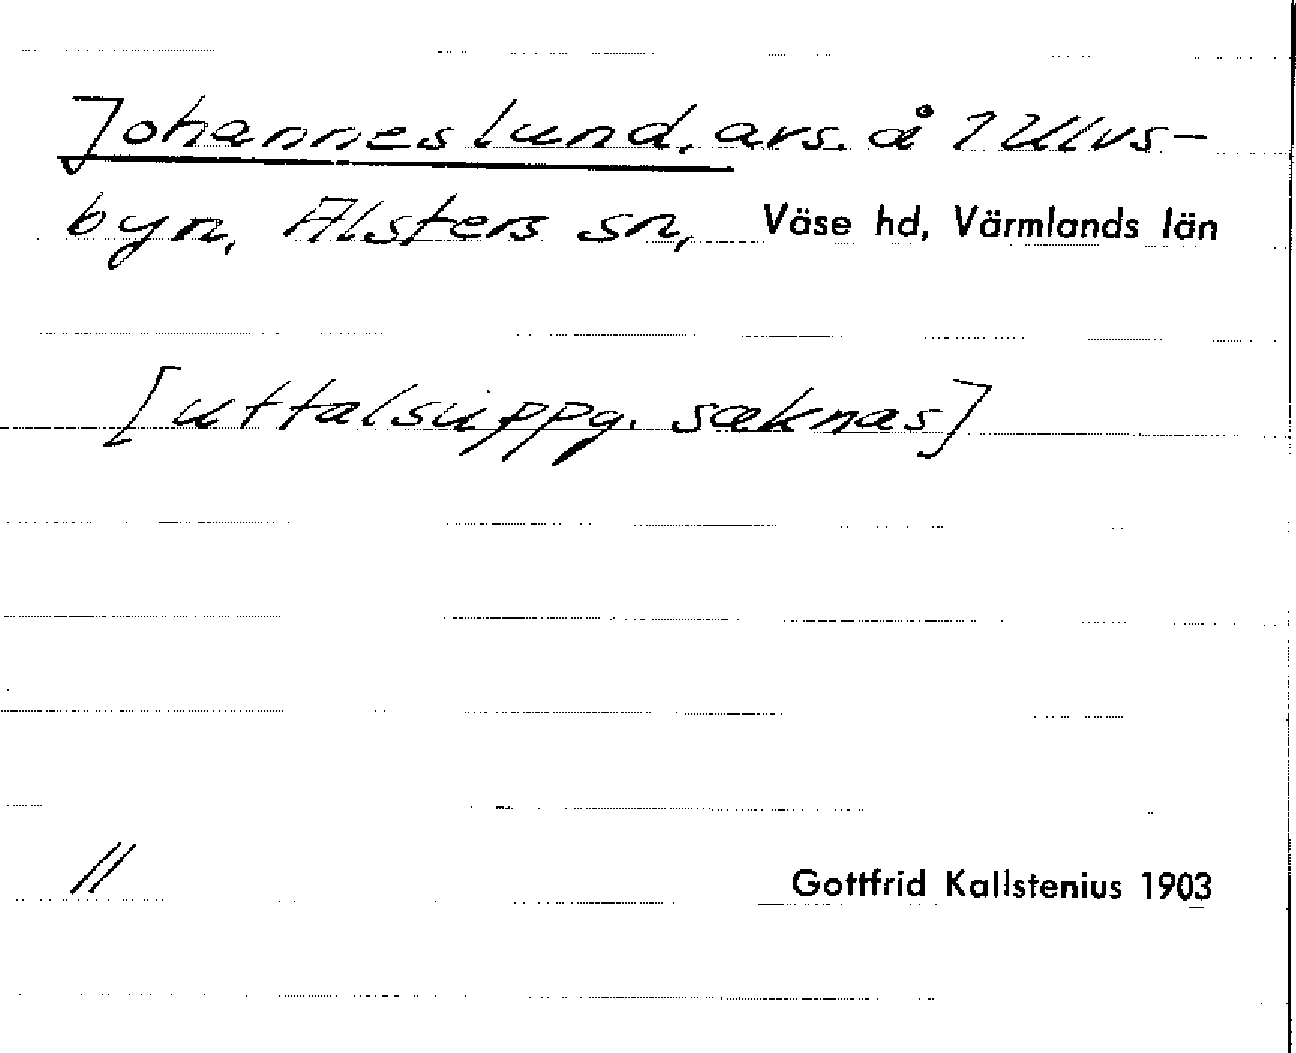 Johanneslund, avs. å 1 Ulvs-
byn, Alsters sn, Väse hd, Värmlands län
[uttalsuppg. saknas]
11
Gottfrid Kallstenius 1903